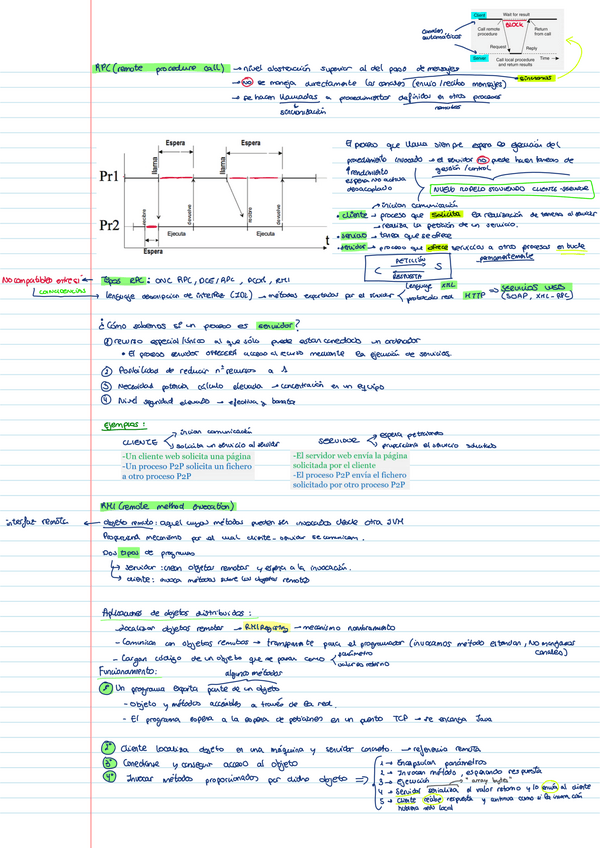 Client
Wait for result
canales automáticos
BLOCK
Call remote procedure
Return from call
Request
Reply
Server
Call local procedure and return results
Time
síncronas
RPC (remote procedure call) → nivel abstracción superior al del paso de mensajes
→ NO se maneja directamente los canales (envio/recibo mensajes)
→ se hacen llamadas a procedimientos definidos en otros procesos
sincronización
remotos
Espera
Espera
llama
llama
Pr1
Pr2
recibe
devuelve
recibe
devuelve
Ejecuta
Ejecuta
Espera
t
El proceso que llama siempre espera la ejecución del
procedimiento invocado → el servidor NO puede hacer tareas de
gestión/control
↑ rendimiento
espera NO activa
desacoplado
NUEVO MODELO SIGUIENDO CLIENTE-SERVIDOR
→ inician comunicación
• cliente → proceso que solicita la realización de tareas al servidor
→ realiza la petición de un servicio.
• servicio → tarea que se ofrece
• servidor → proceso que ofrece servicios a otros procesos en bucle
permanentemente
PETICIÓN
C S
RESPUESTA
No compatibles entre sí ← Tipos RPC: ONC RPC, DCE/RPC, DCOM, RMI
coincidencias
↳ lenguaje descripción de interfaz (IDL) → métodos exportados por el servidor
lenguaje XML
protocolo red HTTP
⇒ SERVICIOS WEB
(SOAP, XML-RPC)
¿Cómo sabemos si un proceso es servidor?
① recurso especial/único al que sólo puede estar conectado un ordenador
• El proceso servidor ofrecerá acceso al recurso mediante la ejecución de servicios.
② Posibilidad de reducir nº recursos a 1
③ Necesidad potencia cálculo elevada → concentración en un equipo
④ Nivel seguridad elevado → efectiva y barata
Ejemplos:
CLIENTE
inician comunicación
solicita un servicio al servidor
SERVIDOR
espera peticiones
proporciona el servicio solicitado
-Un cliente web solicita una página
-Un proceso P2P solicita un fichero
a otro proceso P2P
-El servidor web envía la página
solicitada por el cliente
-El proceso P2P envía el fichero
solicitado por otro proceso P2P
RMI (remote method invocation)
interfaz remota ← objeto remoto: aquel cuyos métodos pueden ser invocados desde otra JVM
Proporciona mecanismo por el cual cliente-servidor se comunican.
Dos tipos de programas
↳ servidor: crean objetos remotos y espera a la invocación.
↳ cliente: invoca métodos sobre los objetos remotos
Aplicaciones de objetos distribuidos:
- Localizar objetos remotos → RMI Registry → mecanismo nombramiento
- Comunicar con objetos remotos → transparente para el programador (invocamos método estándar, NO manejamos
canales)
- Cargar código de un objeto que se pasan como
parámetro
valor de retorno
Funcionamiento:
algunos métodos
1º Un programa exporta parte de un objeto
- Objeto y métodos accesibles a través de la red.
- El programa espera a la espera de peticiones en un puerto TCP → se encarga Java
2º Cliente localiza objeto en una máquina y servidor concreto. → referencia remota
3º Conectarse y conseguir acceso al objeto
4º Invocar métodos proporcionados por dicho objeto ⇒
1 → Encapsulan parámetros
2 → Invocan método, esperando respuesta
3 → Ejecución
"array bytes"
4 → Servidor serializa el valor retorno y lo envía al cliente
5 → Cliente recibe respuesta y continúa como si la invocación
hubiera sido local